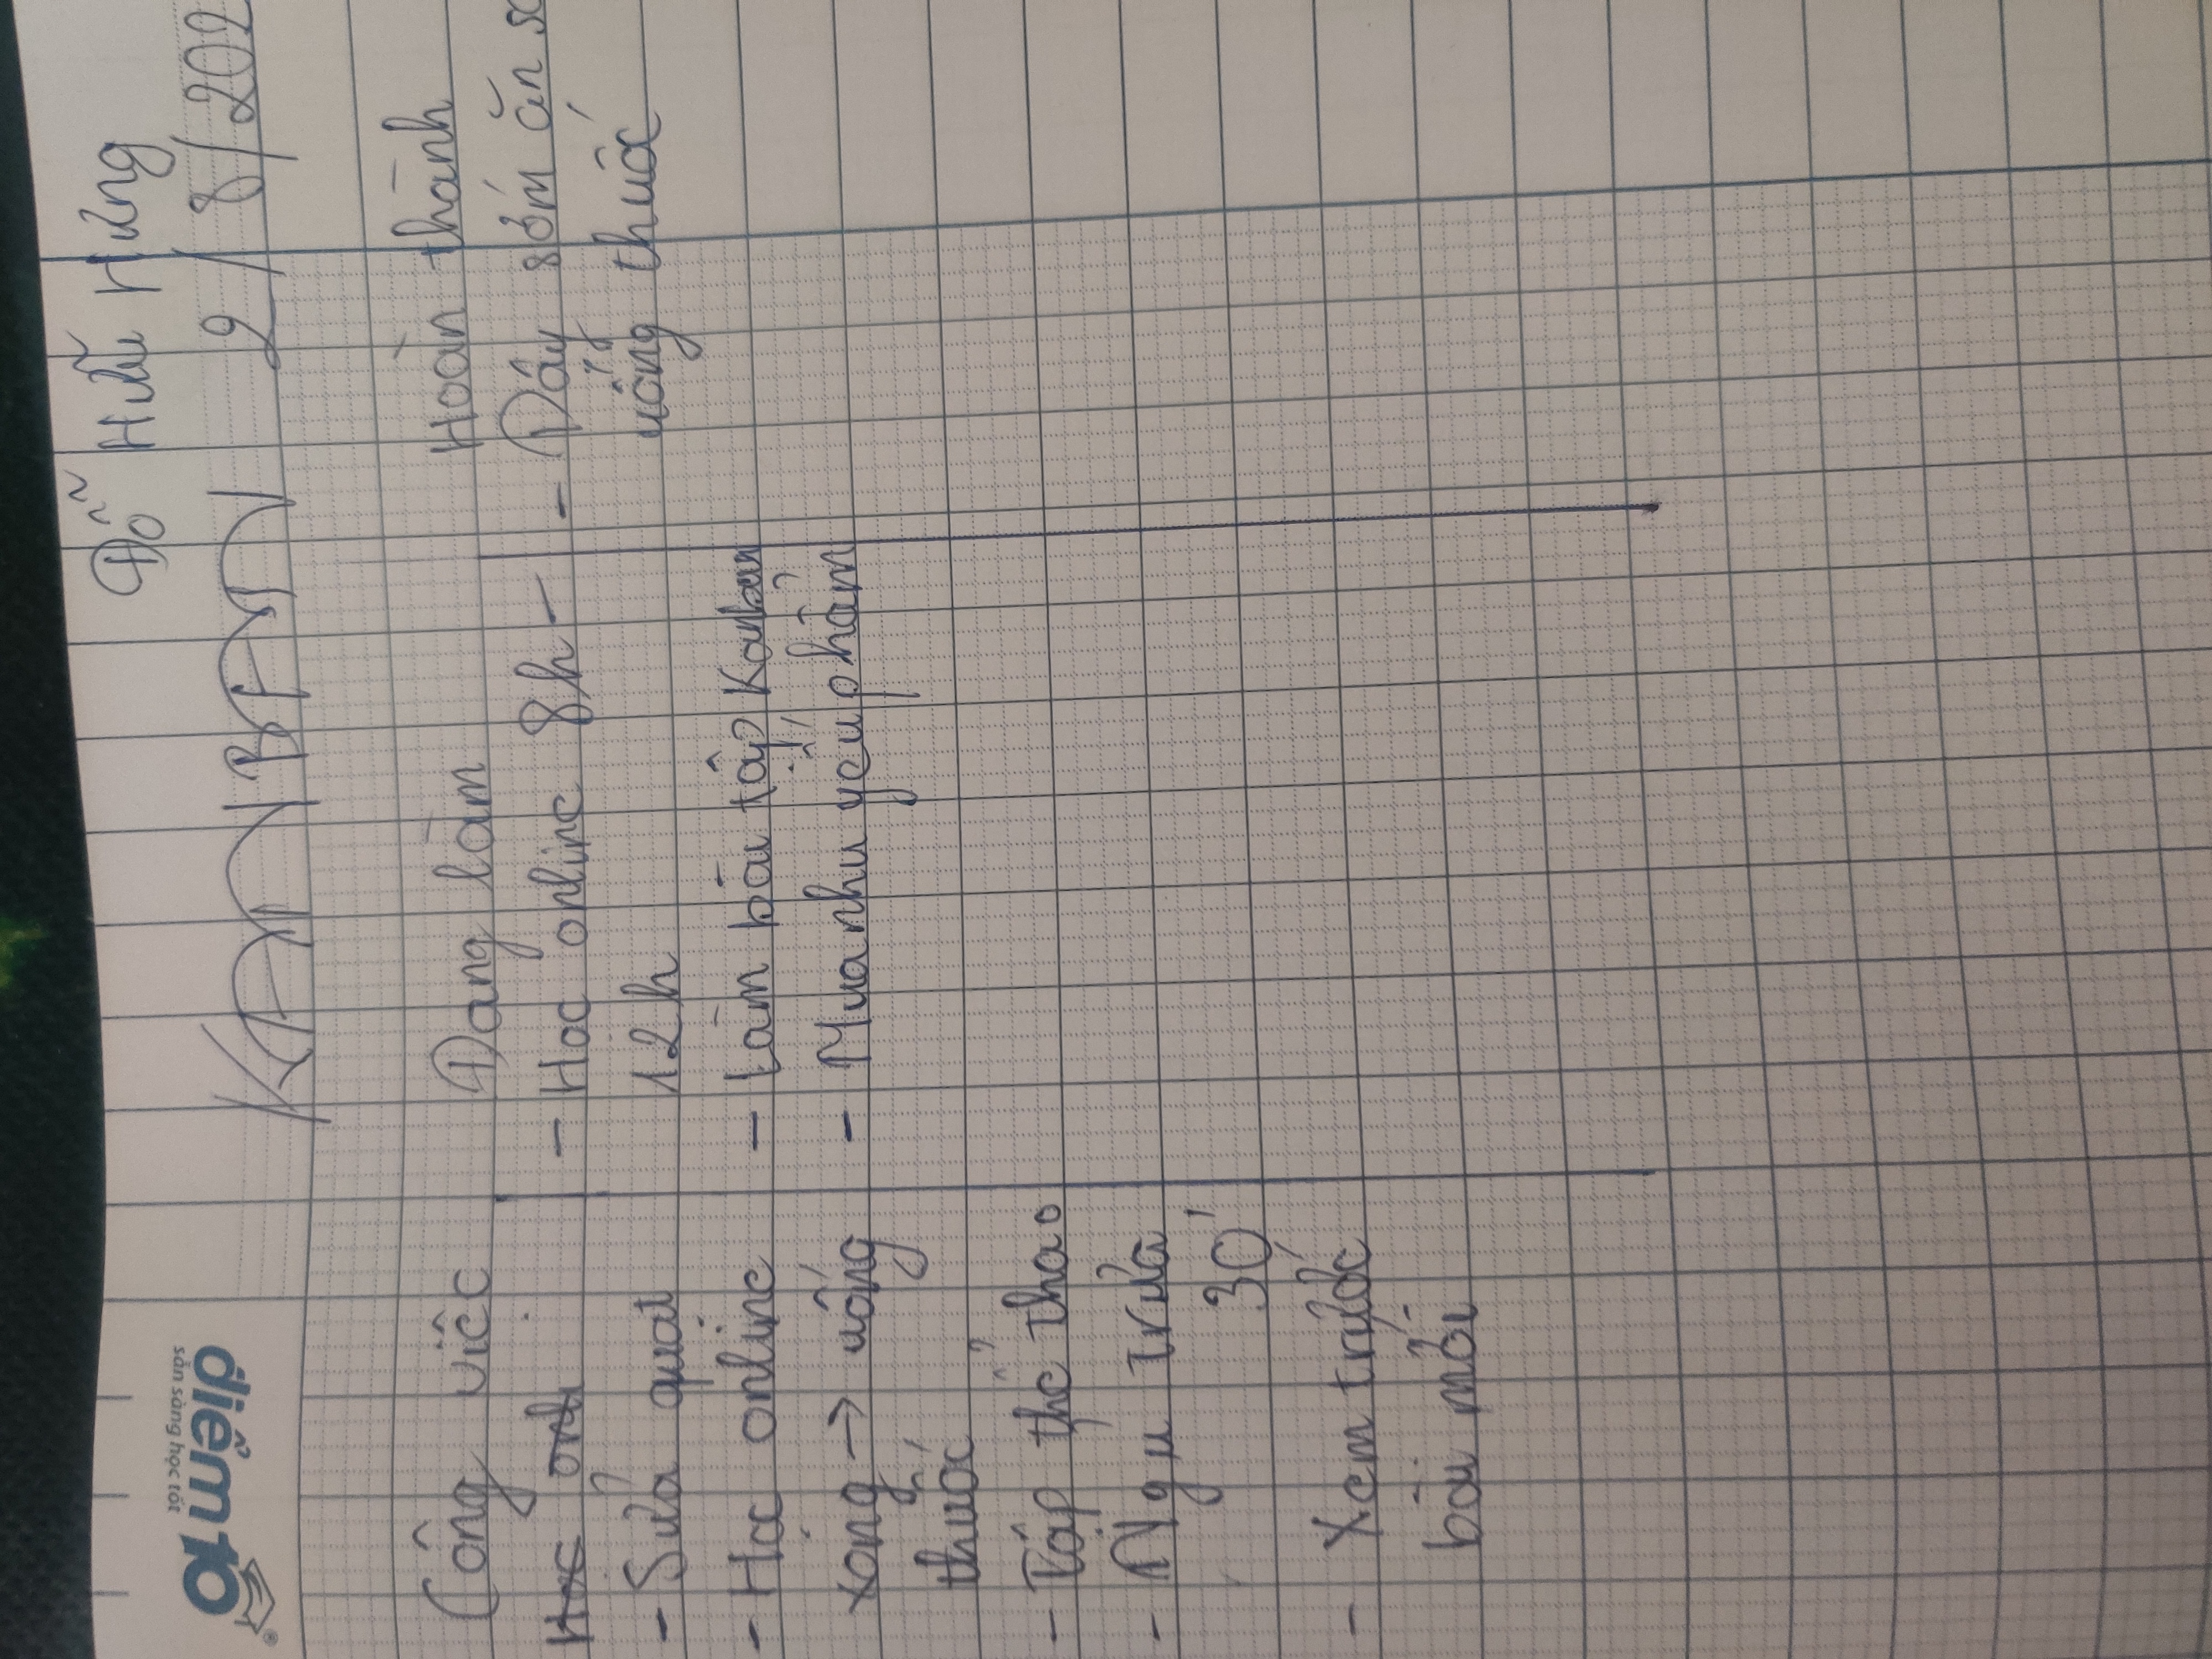 Đỗ Hữu Hưng
điểm 10
sẵn sàng học tốt
KANBAN 2/8/202
Công việc
Học onli
- Sửa quạt
- Học online
xong → uống
thuốc
- Tập thể thao
- Ngủ trưa
30'
- Xem trước
bài mới
Đang làm
- Học online 8h -
12h
- Làm bài tập Kanban
- Mua nhu yếu phẩm
Hoàn thành
- Dậy sớm ăn
uống thuốc